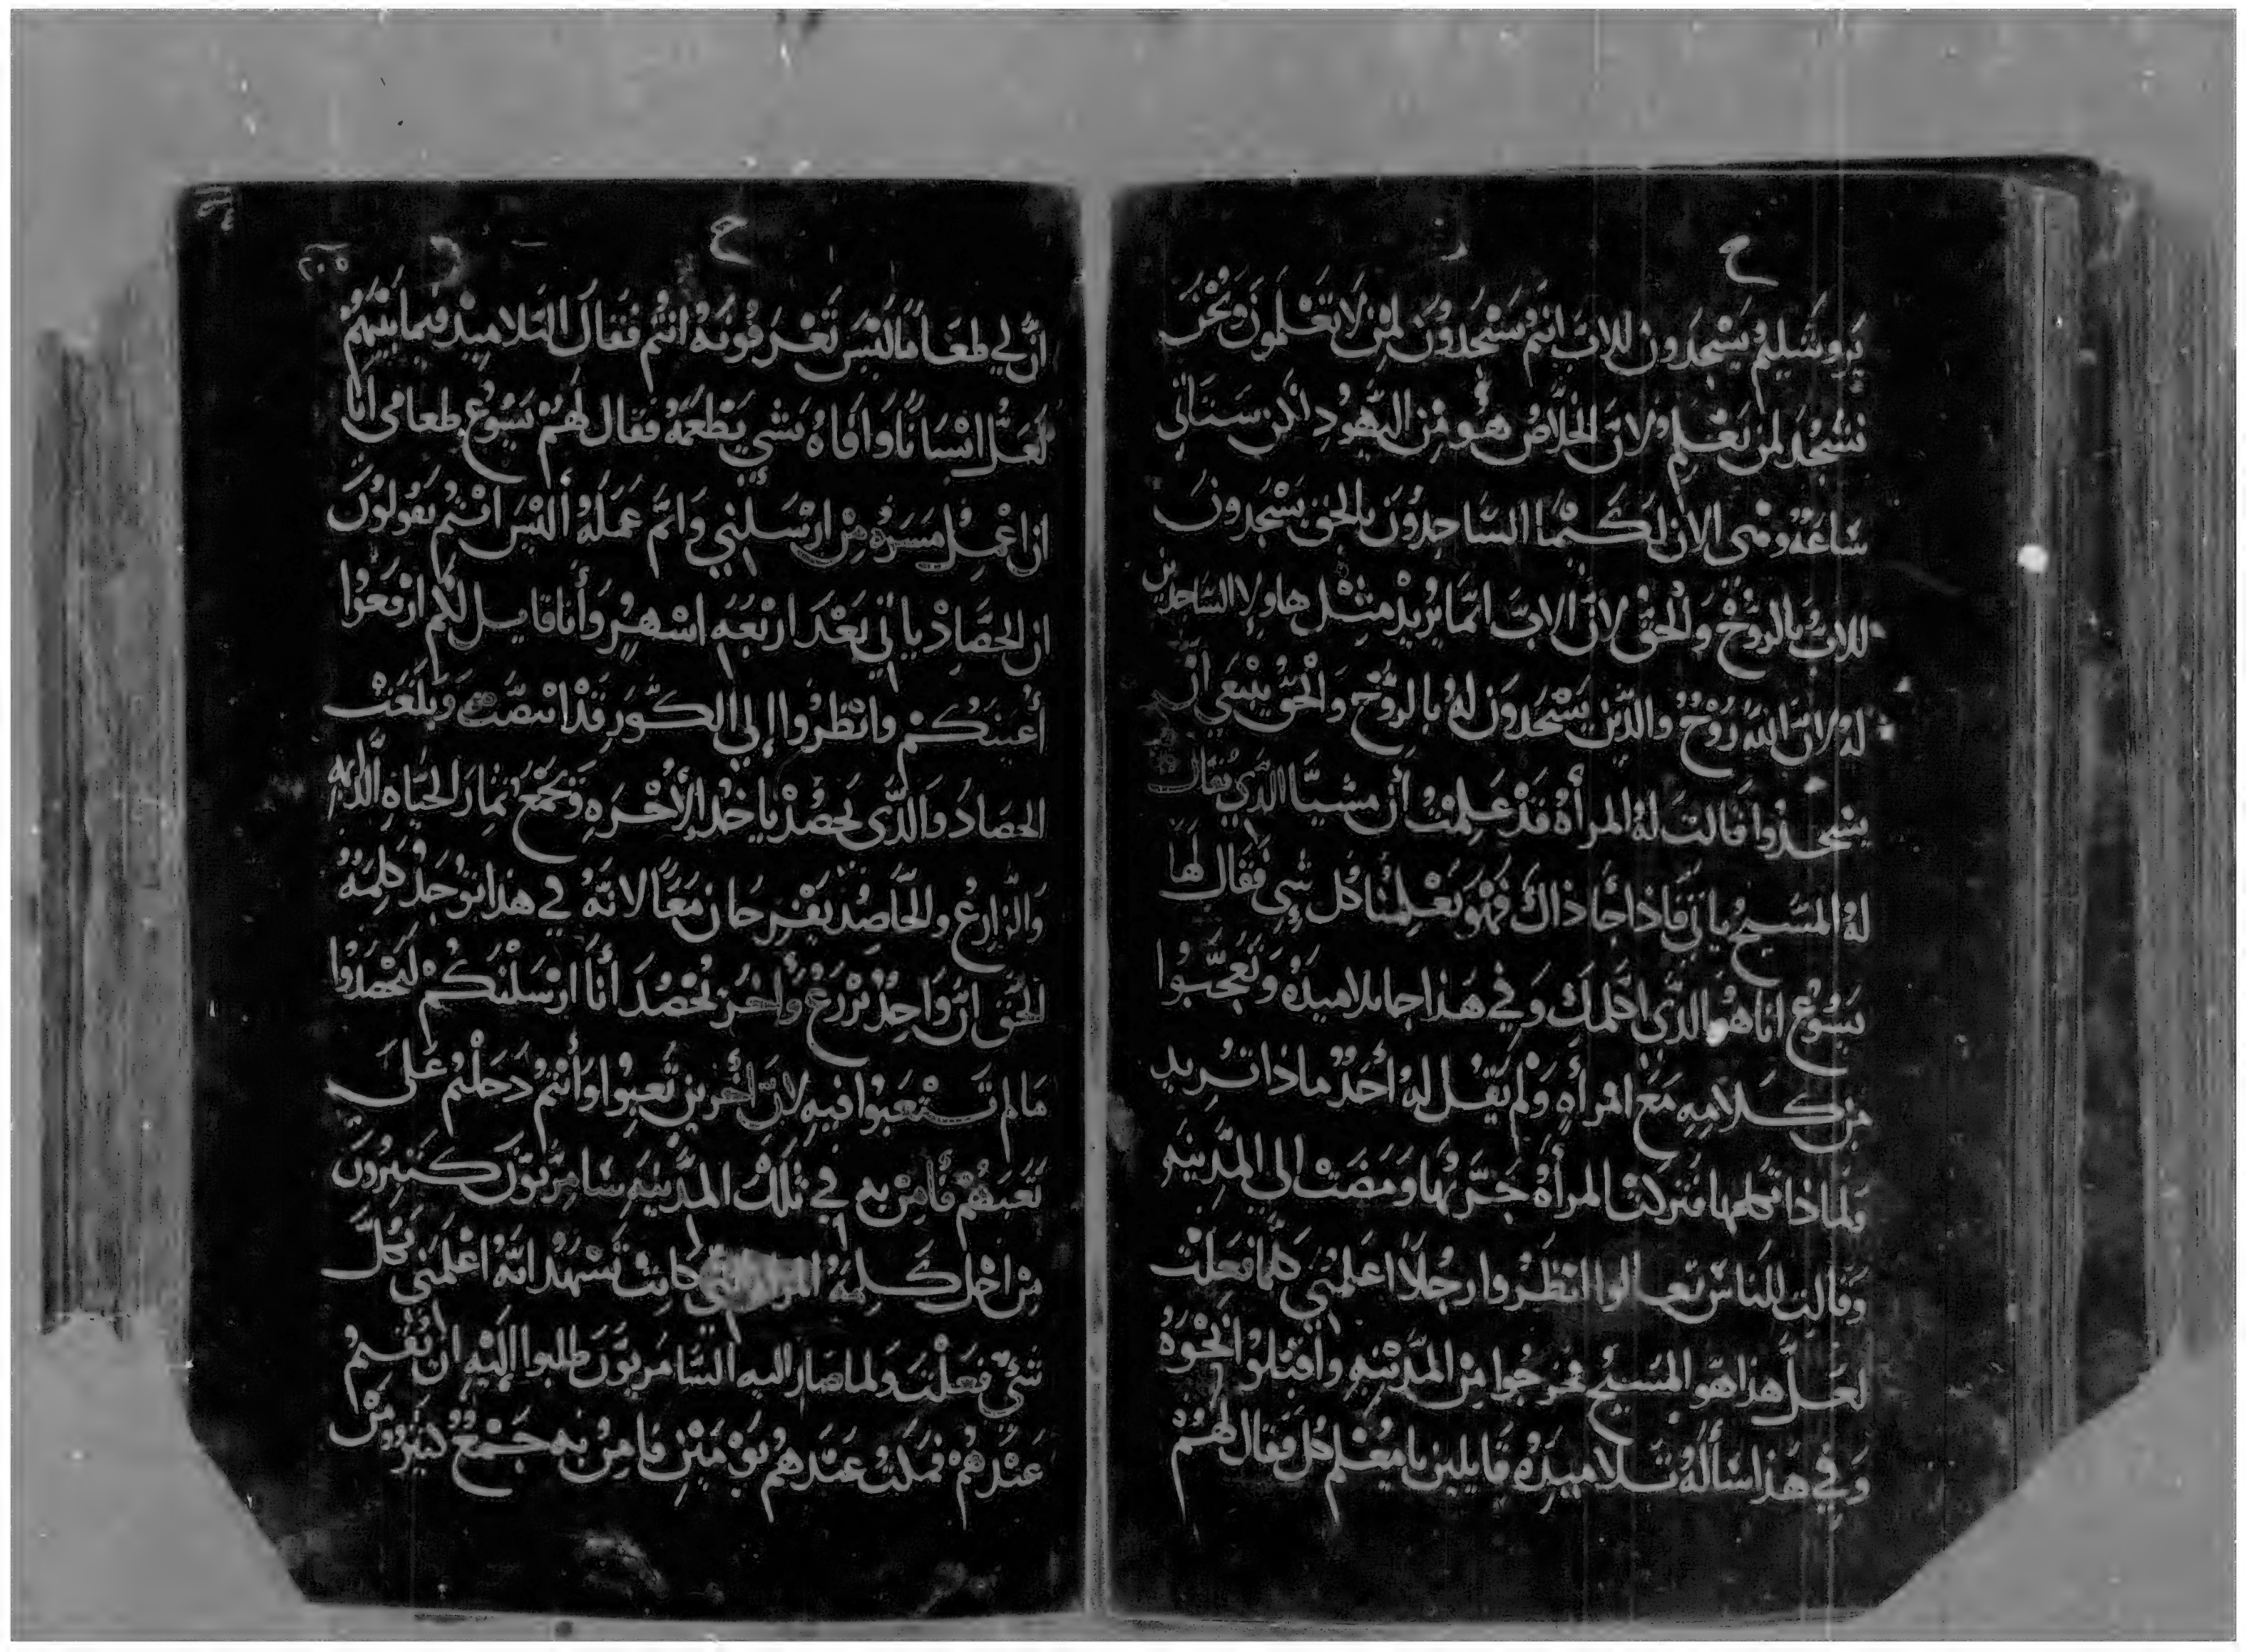 ح ر
يروشليم يسجدون للاب انتم تسجدون لمن لا تعلمون ونحن
نسجد لمن نعلم ولان الخلاص هو من اليهود لكن ستاتي
ساعة وهي الان لكيما الساجدون بالحق يسجدون
للاب بالروح والحق لان الاب انما يريد مثل هاولا الساجدين
له لان الله روح والذين يسجدون له بالروح والحق ينبغي ان
يسجدوا قالت له المرأة قد علمت أن مشيا الذي يقال
له المسيح ياتي فاذا جا ذاك فهو يعلمنا كل شي فقال لها
يسوع انا هو الذي اكلمك وفي هذا جا تلاميذه وتعجبوا
من كلامه مع امرأه ولم يقل له أحد ماذا تريد
ولماذا تكلمها فتركت المرأة جرتها ومضت الى المدينه
وقالت للناس تعالوا انظروا رجلا اعلمني كلما فعلت
لعل هذا هو المسيح فخرجوا من المدينه واقبلوا نحوه
وفي هذا سأله تلاميذه قايلين يا معلم كل فقال لهم
ح
٢٠٥
ان لي طعاما ليس تعرفونه انتم فقال التلاميذ فيما بينهم
لعل انسانا وافاه بشي يطعمه فقال لهم يسوع طعامي انا
ان اعمل مسرة من ارسلني واتم عمله أليس انتم تقولون
ان الحصاد ياتي بعد اربعه اشهر وأنا قايل لكم ارفعوا
أعينكم وانظروا إلي الكور قد ابيضت وبلغت
الحصاد والذي يحصد ياخذ الأجره ويجمع ثمار الحياه الدايمه
والزارع والحاصد يفرحان معا لانه في هذا توجد كلمة
الحق ان واحد يزرع واخر يحصد أنا ارسلتكم لتحصدوا
ما لم تستعبوا فيه لان أخرين تعبوا وأنتم دخلتم على
تعبهم فأمن به في تلك المدينه سامريون كثيرون
من اجل كلمة المرأه التي كانت تشهد انه اعلمني بكل
شي فعلت ولما صار اليه السامريون طلبوا إليه ان يقيم
عندهم فمكث عندهم يومين فامن به جمع كثير من